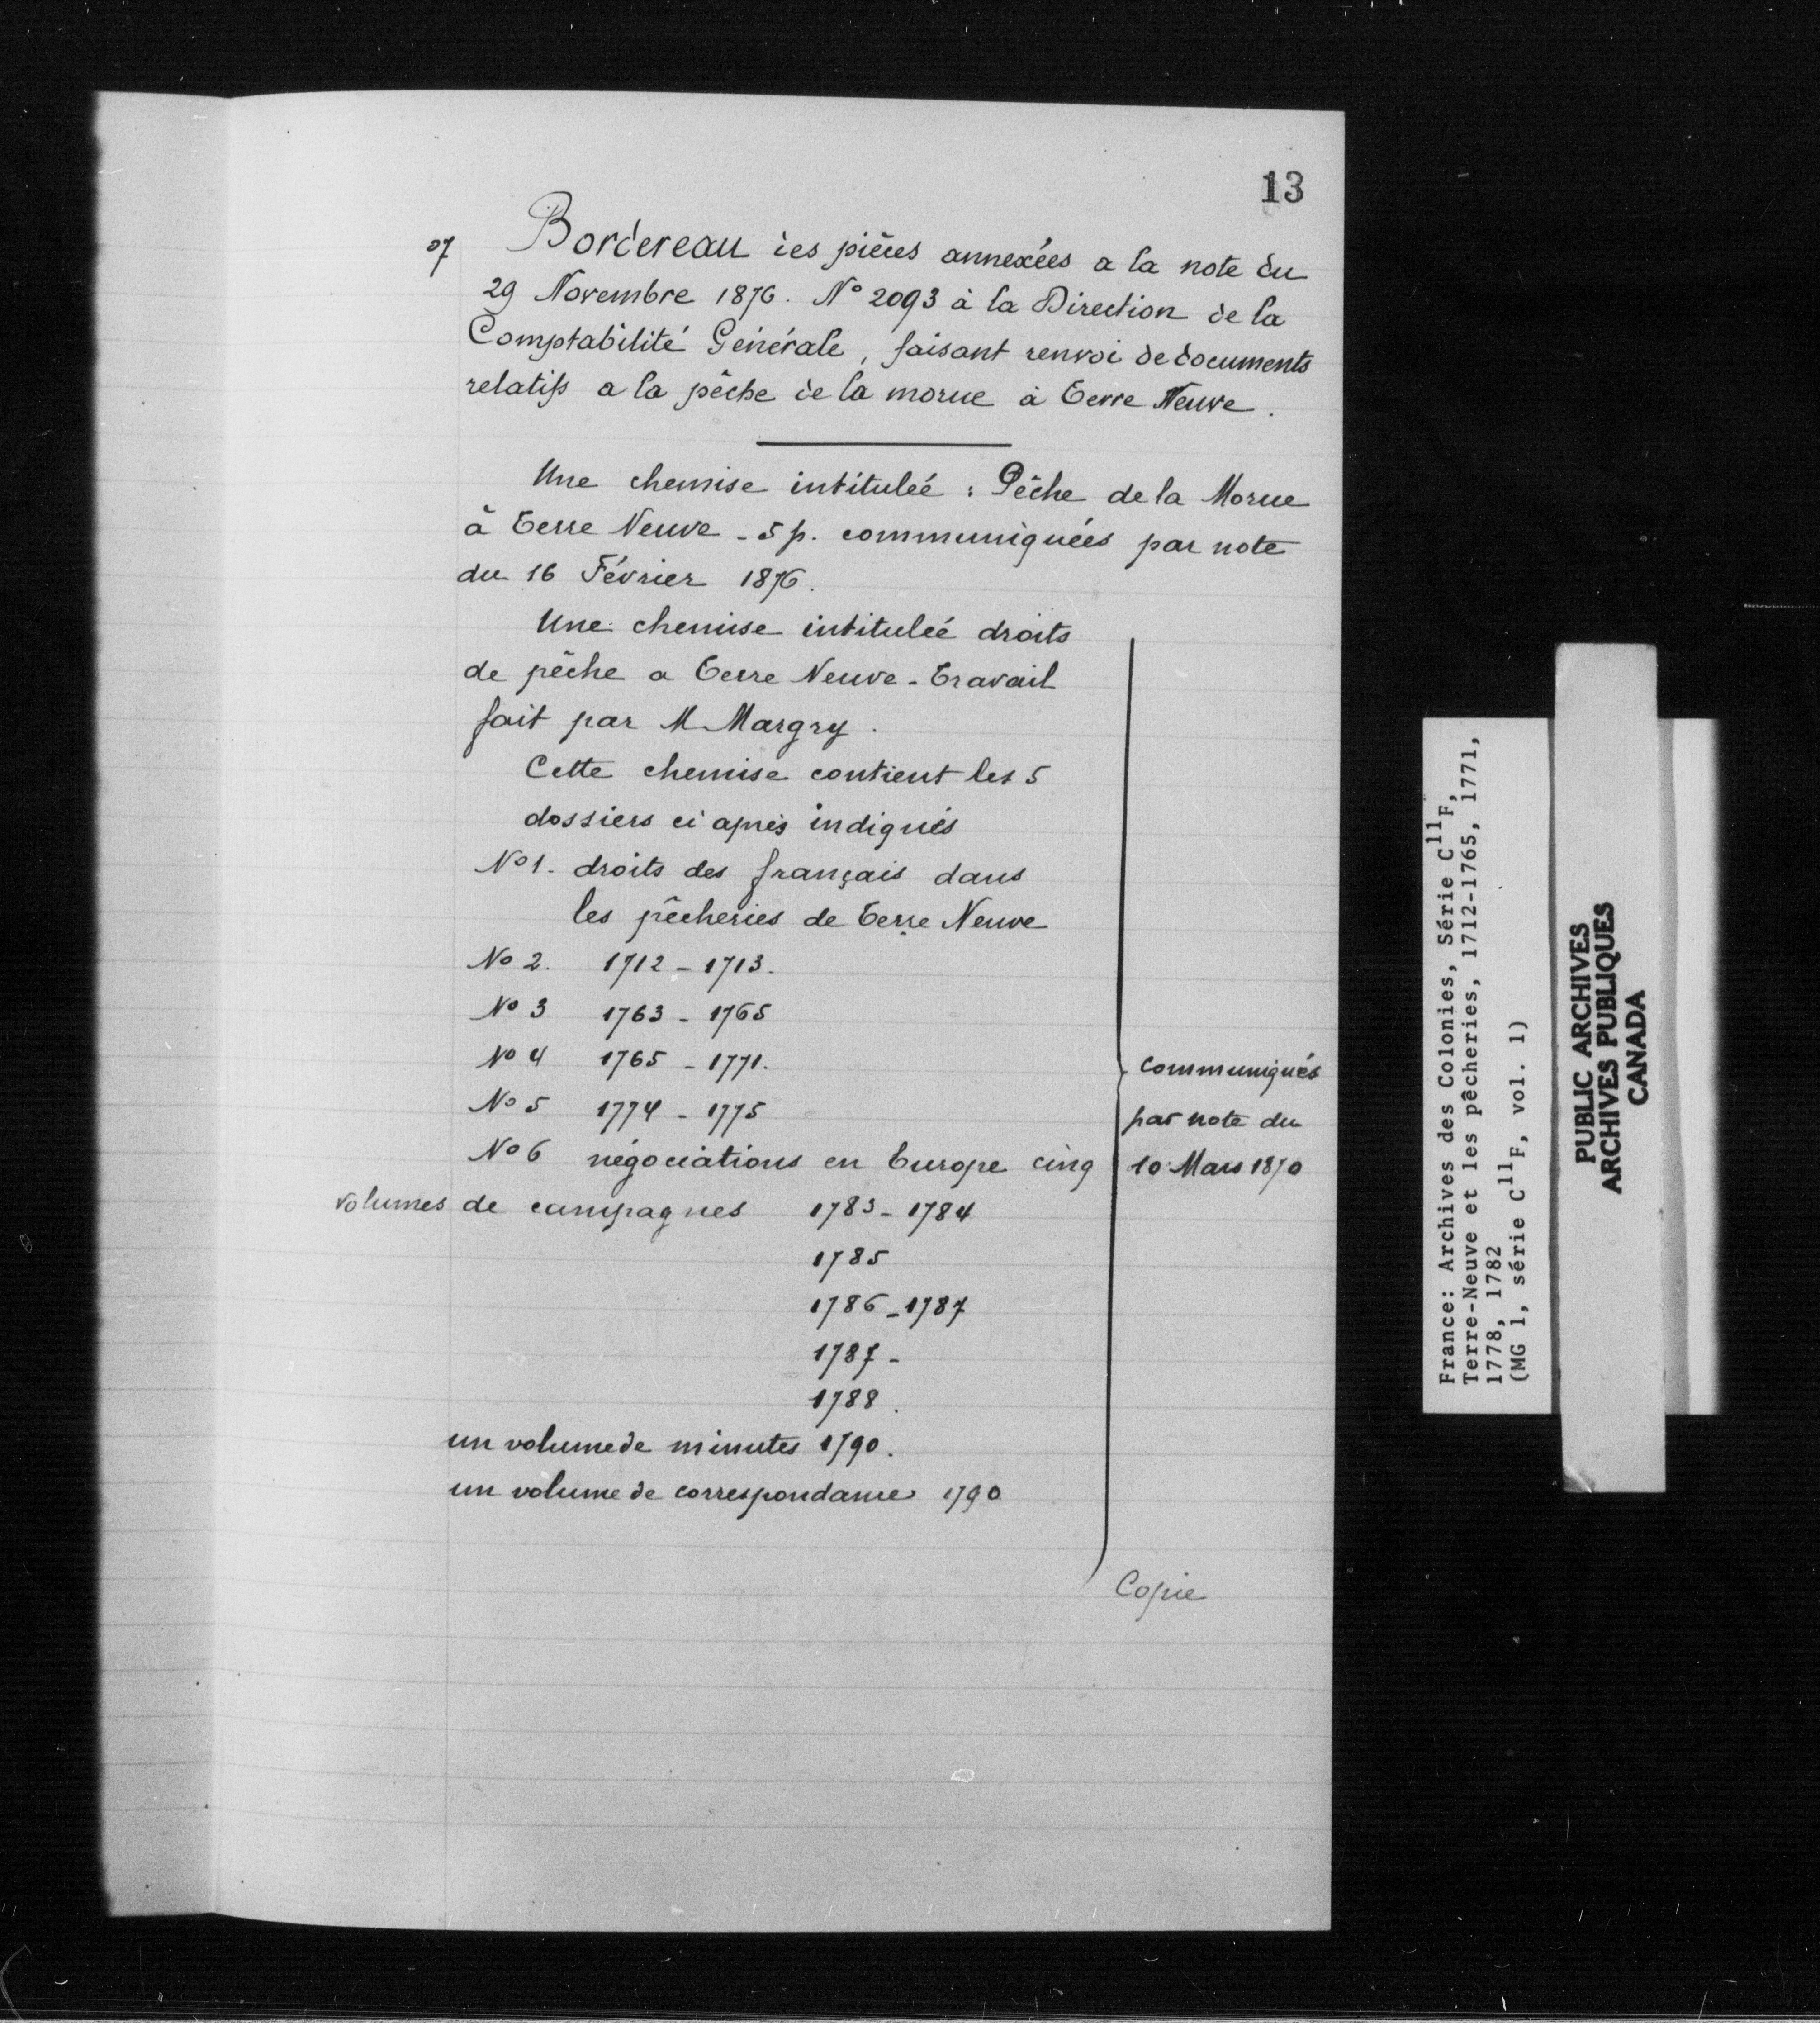 13
07 Bordereau des pièces annexées a la note du
29 Novembre 1876. N° 2093 à la Direction de la
Comptabilité Générale, faisant renvoi de documents
relatifs a la pêche de la morue à Terre Neuve.
Une chemise intituleé : Pêche de la Morue
à Terre Neuve - 5 p. communiquées par note
du 16 Février 1876.
Une chemise intituleé droits
de pêche a Terre Neuve - Travail
fait par M Margry.
Cette chemise contient les 5
dossiers ci après indiqués
No 1. droits des français dans
les pêcheries de Terre Neuve
No 2. 1712 - 1713.
No 3 1763 - 1765
No 4 1765 - 1771.
No 5 1774 - 1775
No 6 négociations en Europe cinq
volumes de campagnes 1783 - 1784
1785
1786 - 1787
1787 -
1788.
un volume de minutes 1790.
un volume de correspondance 1790
communiqués
par note du
10 Mars 1870
Copie
France: Archives des Colonies, Série C11F,
Terre-Neuve et les pêcheries, 1712-1765, 1771,
1778, 1782
(MG 1, série C11F, vol. 1)
PUBLIC ARCHIVES
ARCHIVES PUBLIQUES
CANADA